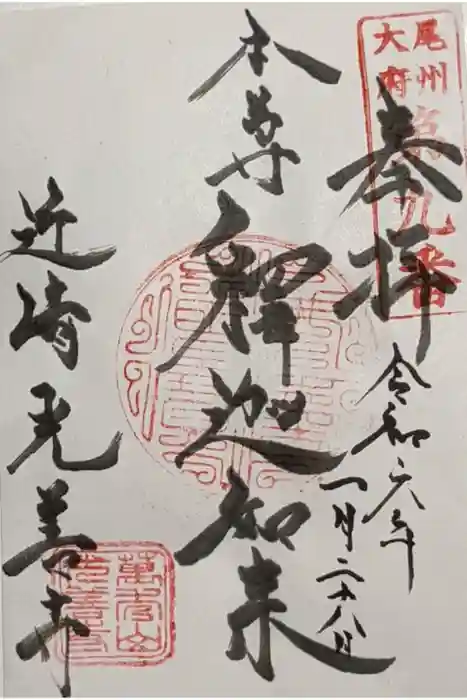 尾州
大府
九番
奉拝
令和六年
一月二十八日
本尊
釋迦如来
近崎光善寺